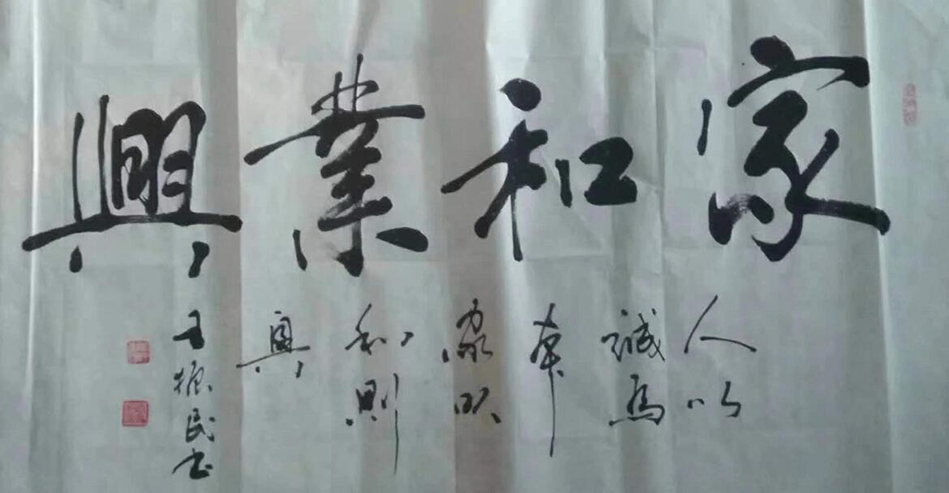 家和業興
人以
誠為
本
家以
和則
興
王振民书